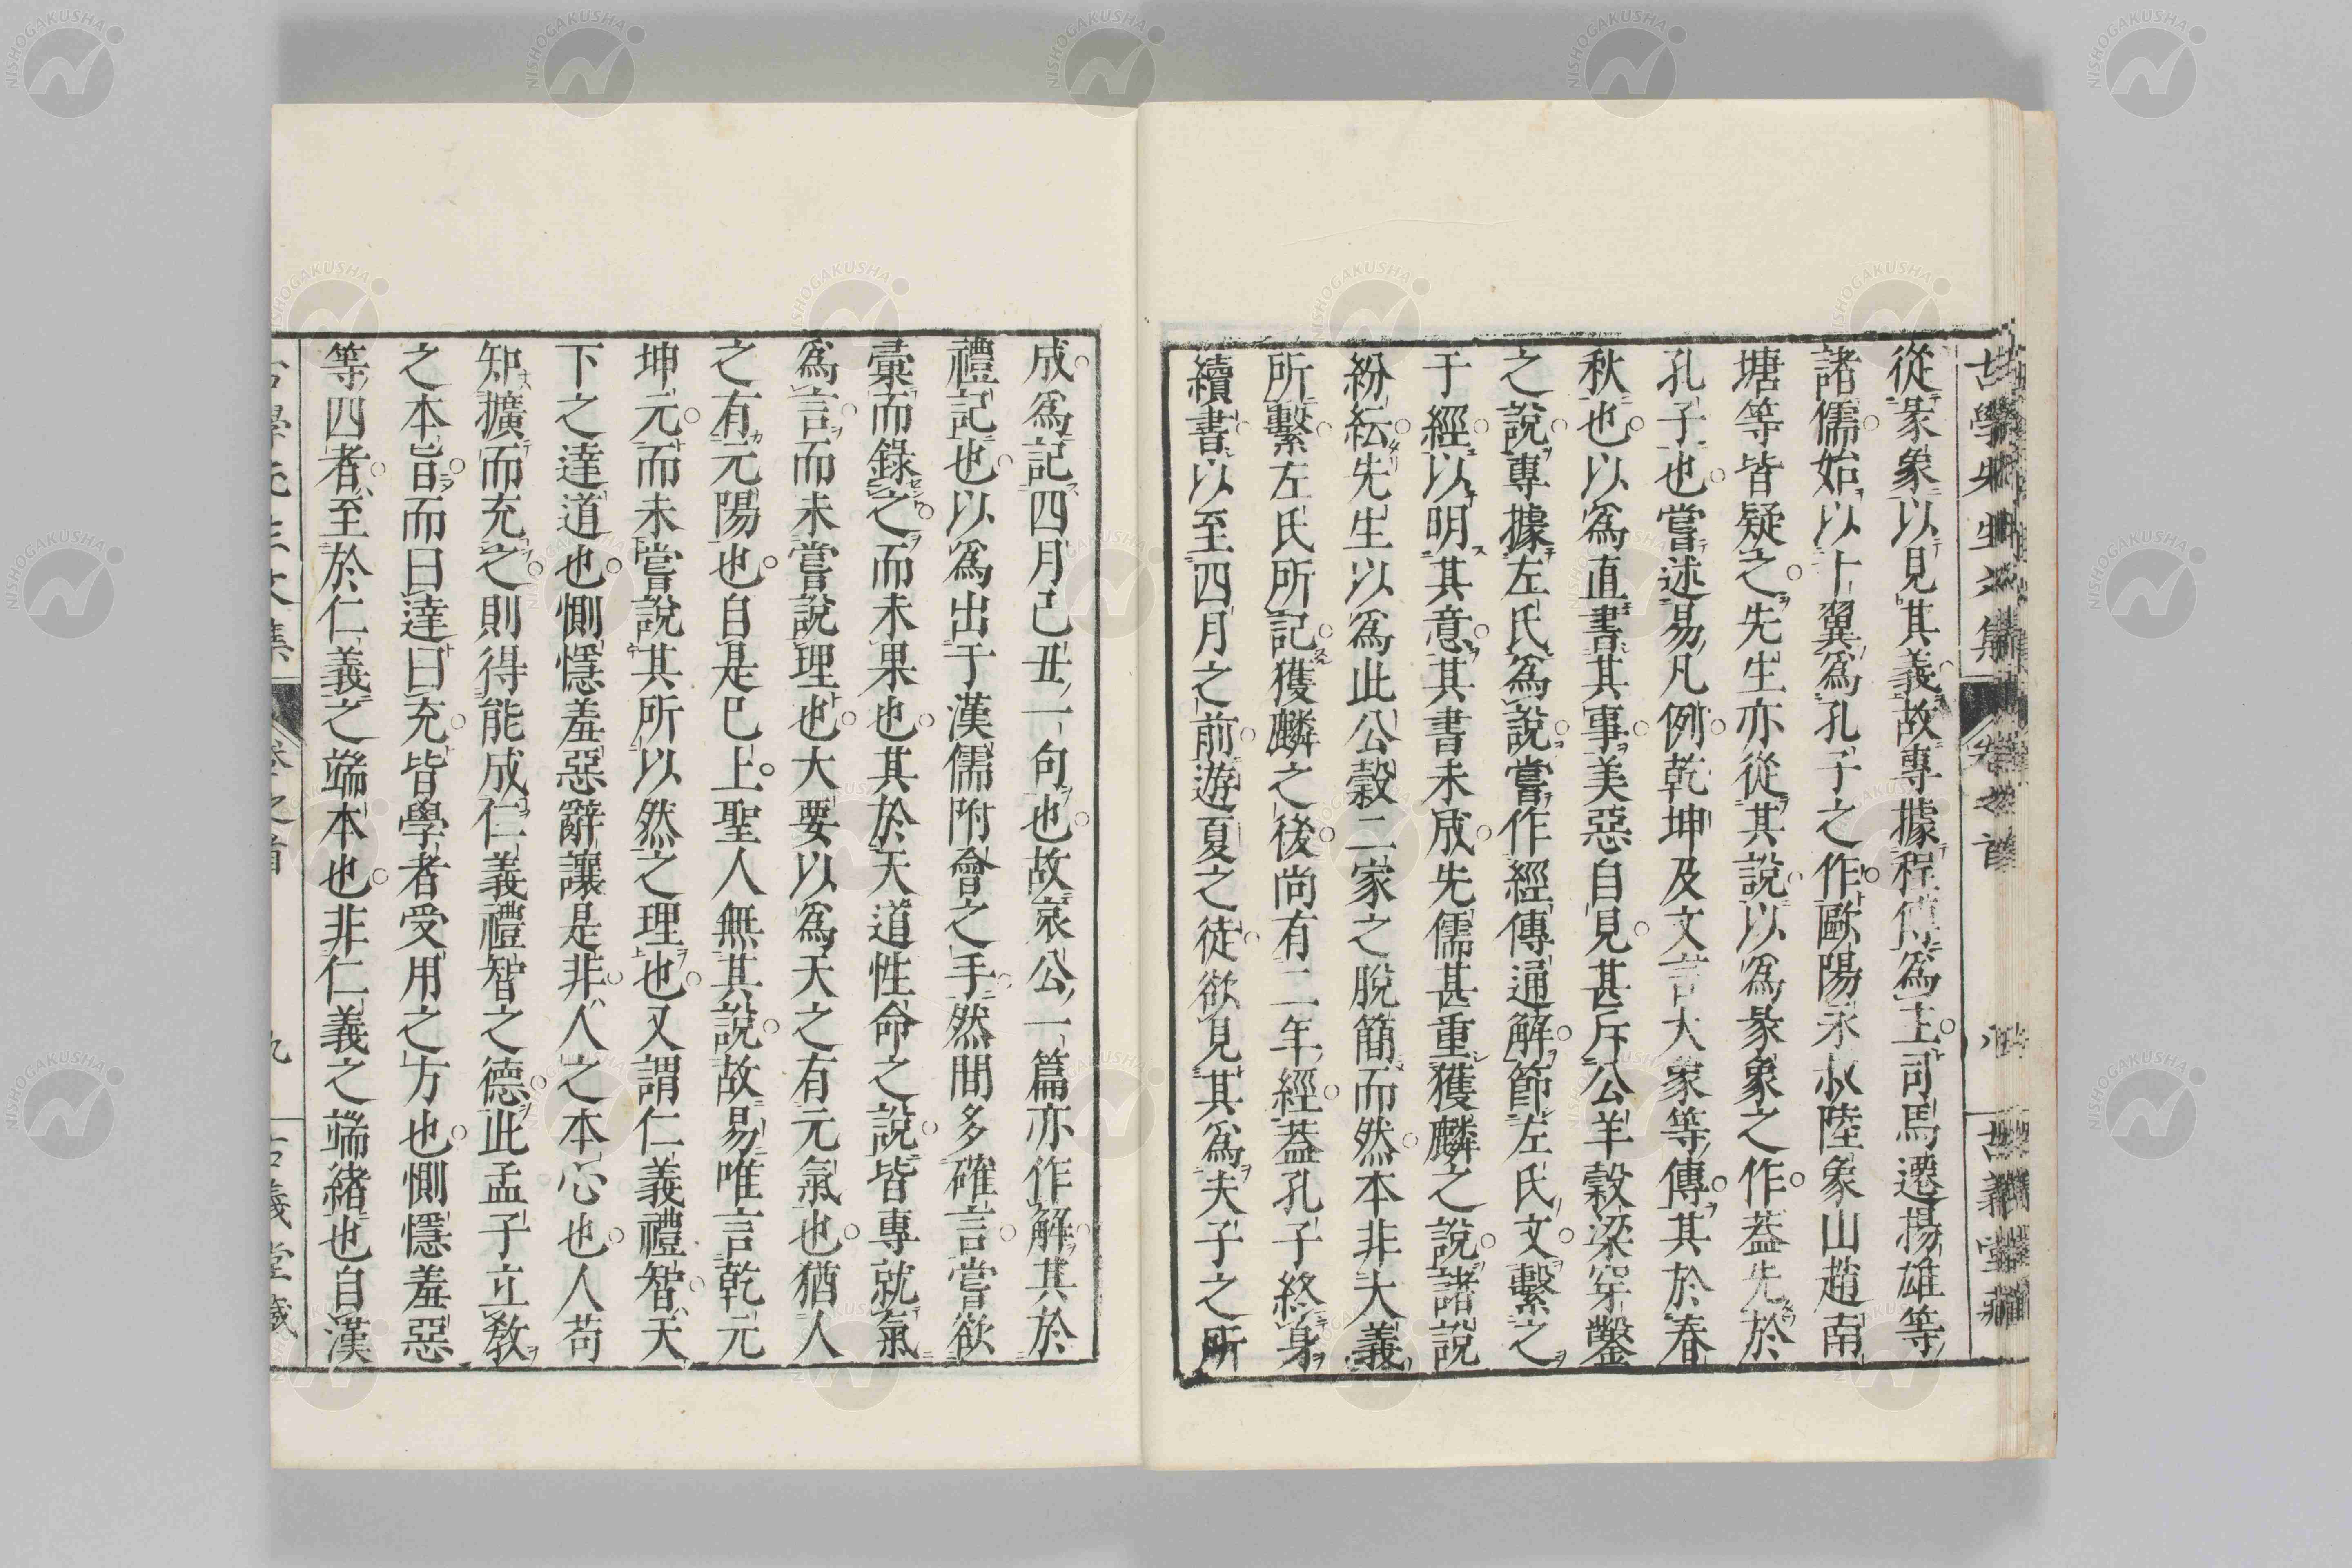 古學先生文集 卷之首 八 古義堂藏
從彖象以見其義故專據程傳爲主司馬遷揚雄等
諸儒始以十翼爲孔子之作歐陽永叔陸象山趙南
塘等皆疑之先生亦從其說以爲彖象之作蓋先於
孔子也嘗述易凡例乾坤及文言大象等傳其於春
秋也以爲直書其事美惡自見甚斥公羊穀梁穿鑿
之說專據左氏爲說嘗作經傳通解節左氏文繫之
于經以明其意其書未成先儒甚重獲麟之說諸說
紛紜先生以爲此公穀二家之脫簡而然本非大義
所繫左氏所記獲麟之後尚有二年經蓋孔子終身
續書以至四月之前遊夏之徒欲見其爲夫子之所
成爲記四月己丑一句也故哀公一篇亦作解其於
禮記也以爲出于漢儒附會之手然間多確言嘗欲
彙而錄之而未果也其於天道性命之說皆專就氣
爲言而未嘗說理也大要以爲天之有元氣也猶人
之有元陽也自是已上聖人無其說故易唯言乾元
坤元而未嘗說其所以然之理也又謂仁義禮智天
下之達道也惻隱羞惡辭讓是非人之本心也人苟
知擴而充之則得能成仁義禮智之德此孟子立教
之本旨而曰達曰充皆學者受用之方也惻隱羞惡
等四者至於仁義之端本也非仁義之端緒也自漢
古學先生文集 卷之首 九 古義堂藏
NISHOGAKUSHA